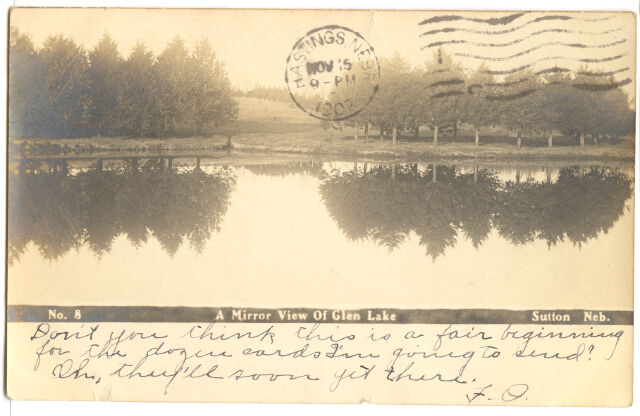 HASTINGS, NEBR.
NOV 15
9-PM
1907
No. 8 A Mirror View Of Glen Lake Sutton Neb.
Don't you think this is a fair beginning
for the dozen cards I'm going to send?
Oh, they'll soon git there.
F. O.